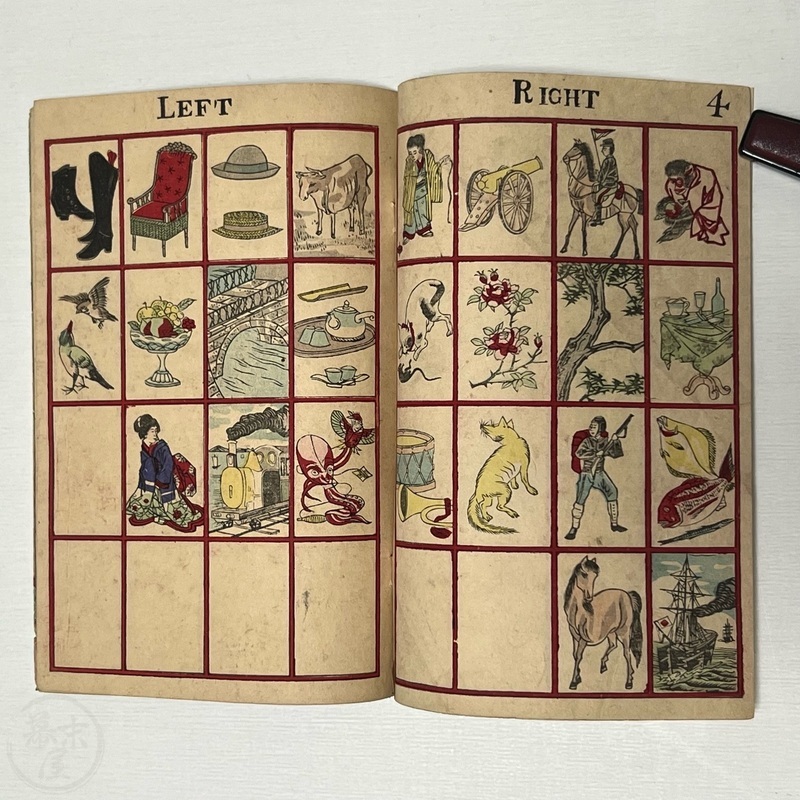 LEFT
RIGHT
4